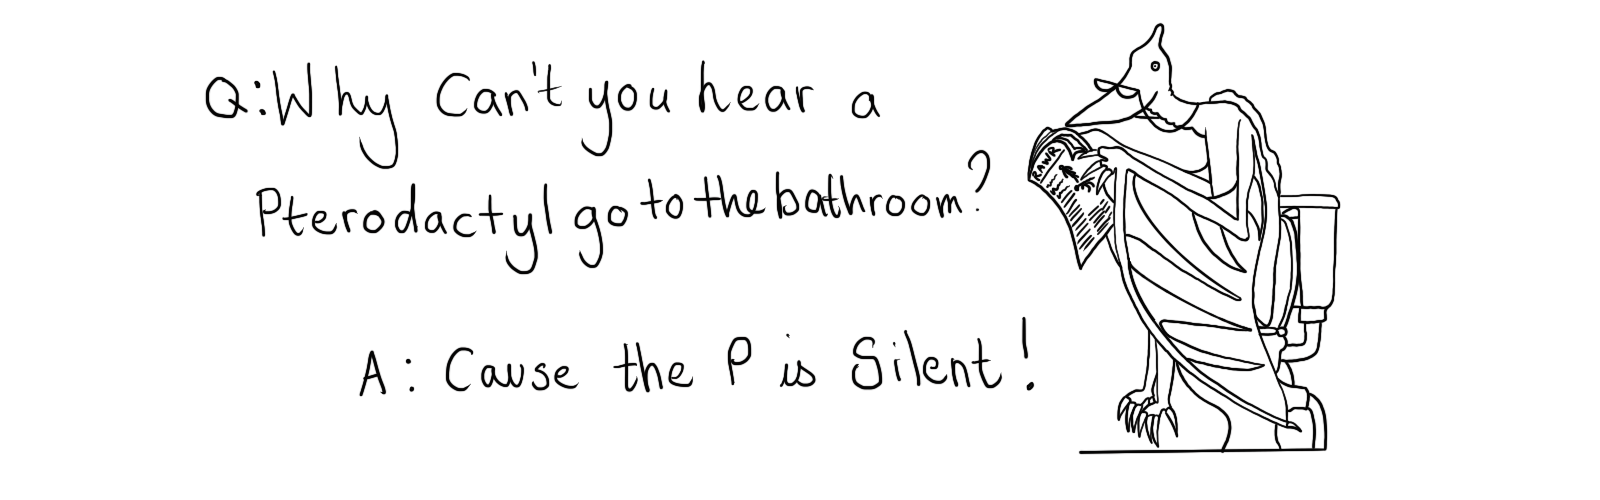 Q: Why Can't you hear a
Pterodactyl go to the bathroom?
A: Cause the P is Silent!
RAWR